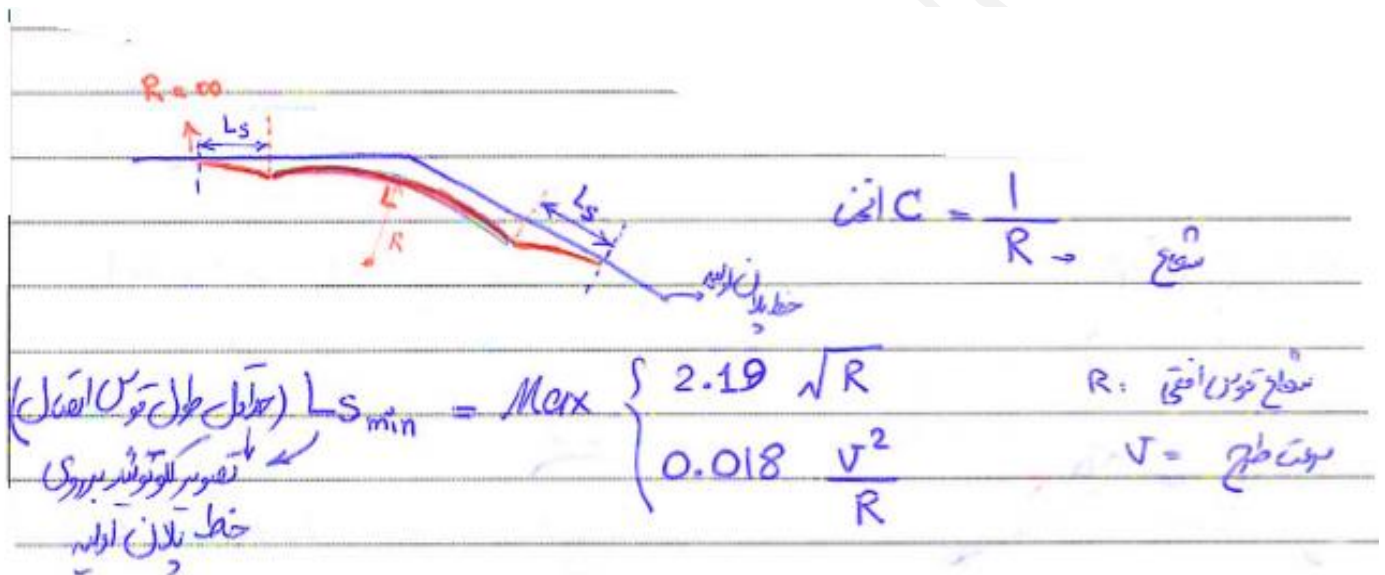 R = ∞
Ls
L
R
Ls
خط پلان اولیه
C = 1/R → شعاع
(حداقل طول قوس اتصال) Ls min = Max { 2.19 √R
0.018 v²/R
R: شعاع قوس افقی
V = سرعت طرح
تصویر کلوتوئید بر روی
خط پلان اولیه